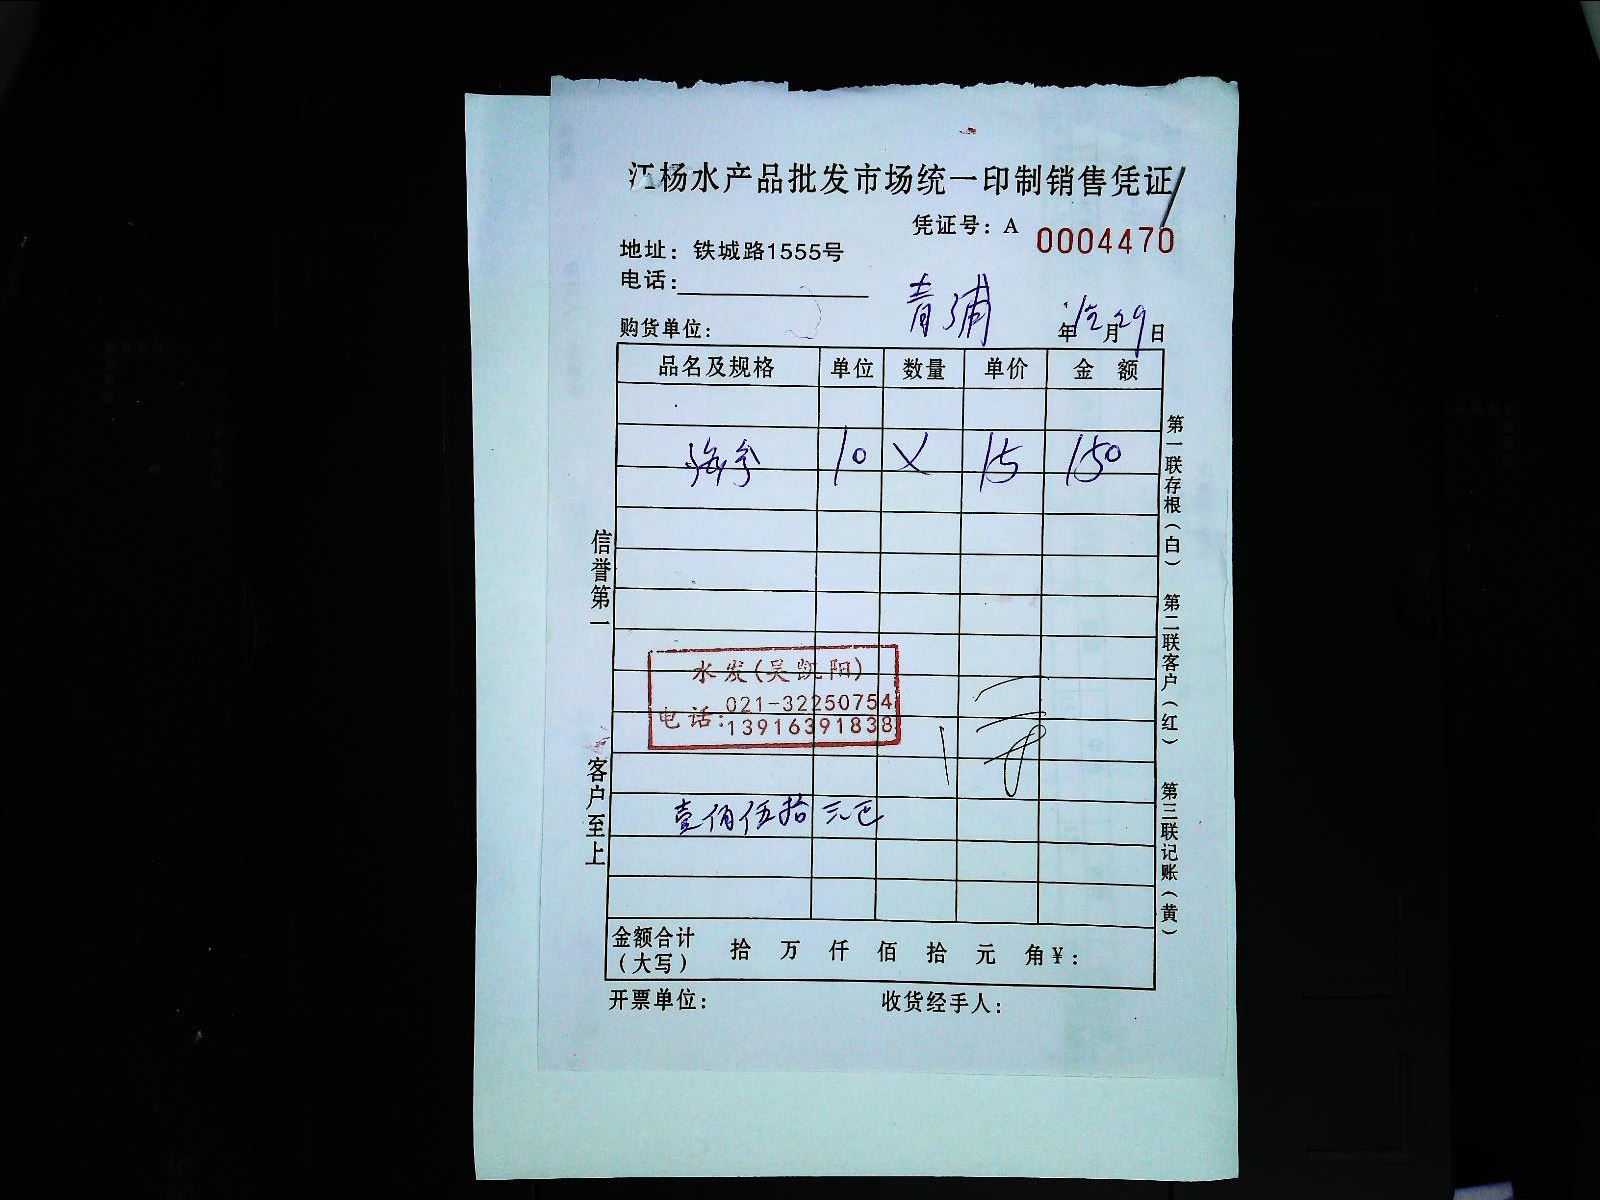 江杨水产品批发市场统一印制销售凭证
凭证号：A 0004470
地址：铁城路1555号
电话：
青浦
购货单位：
年12月29日
品名及规格 单位 数量 单价 金 额
海参 10 X 15 150
水发(吴凯阳)
电话：021-32250754
13916391838
壹佰伍拾元正
金额合计（大写） 拾 万 仟 佰 拾 元 角 ¥：
开票单位： 收货经手人：
信誉第一 客户至上
第一联存根（白） 第二联客户（红） 第三联记账（黄）